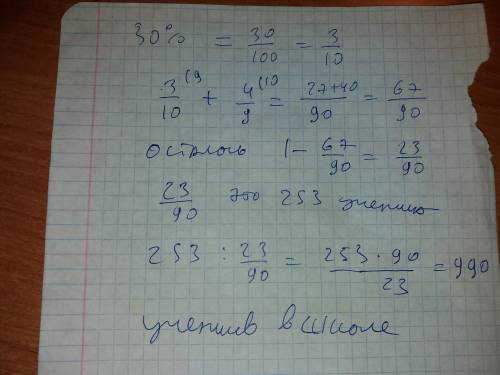 30% = 30/100 = 3/10
3/10 (9 + 4/9 (10 = 27+40/90 = 67/90
осталось 1 - 67/90 = 23/90
23/90 это 253 ученика
253 : 23/90 = 253 · 90/23 = 990
учеников в школе